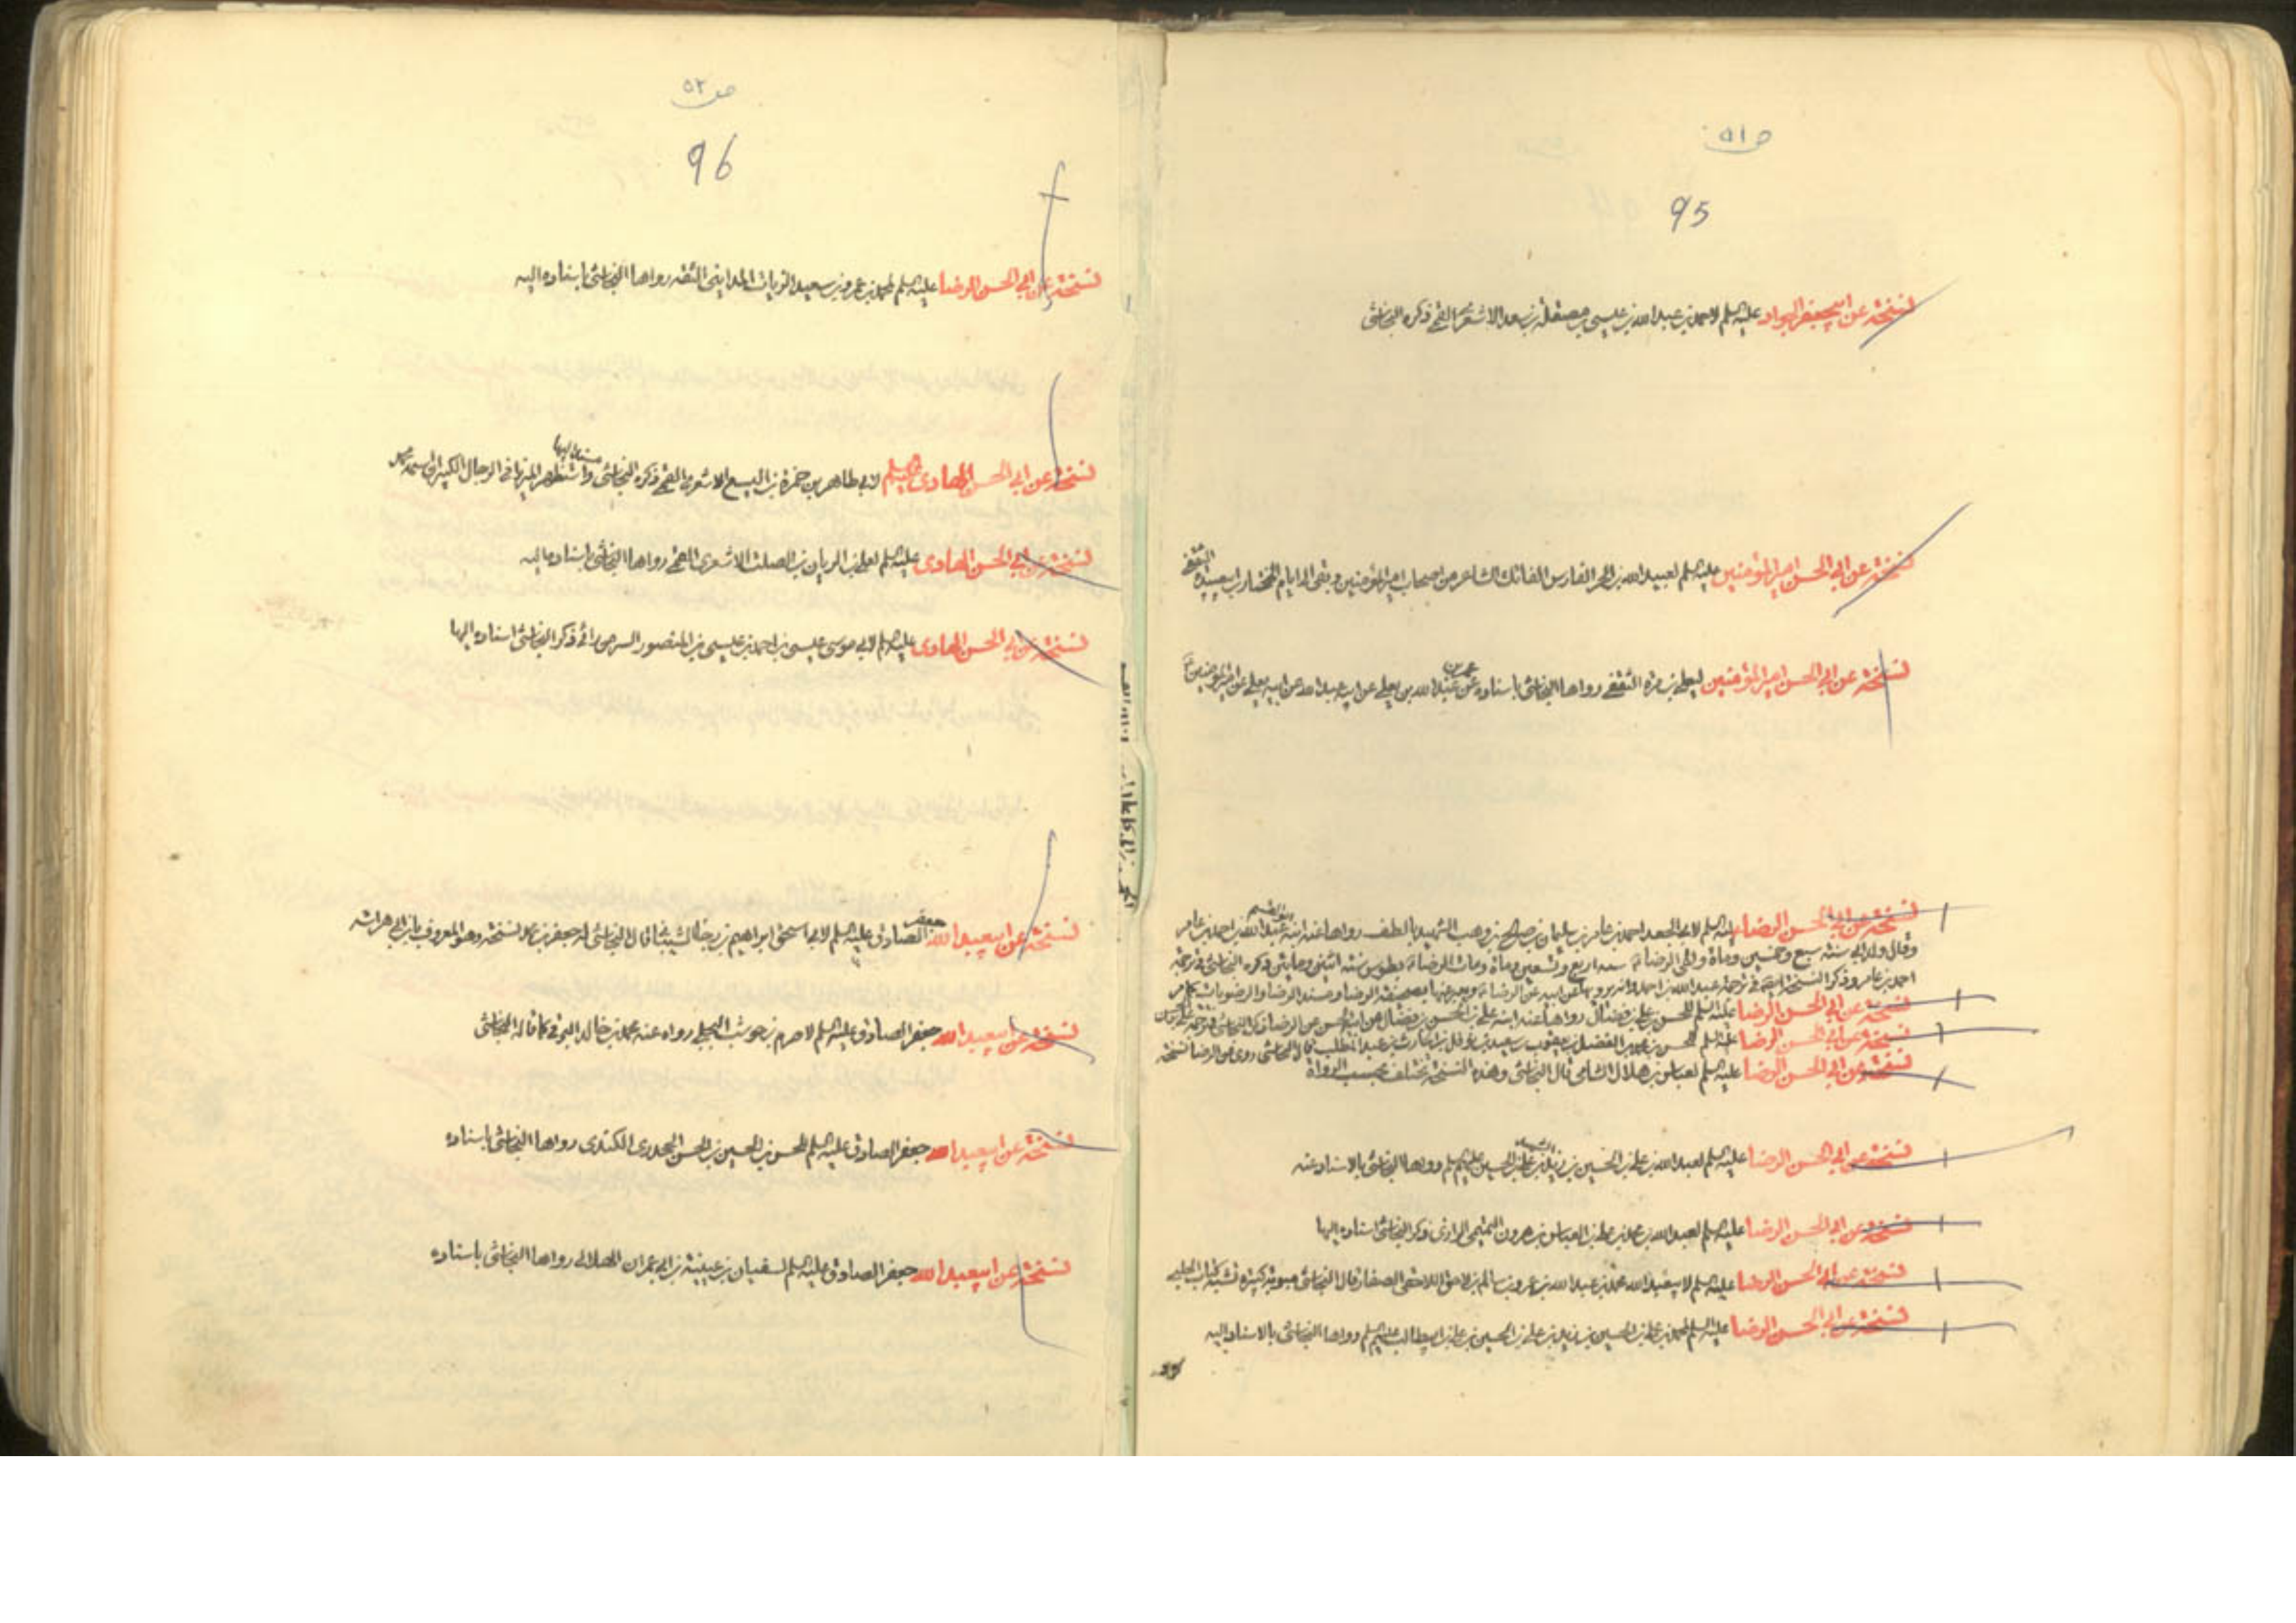 ص ٥١
95
نسخة عن ابيجعفر الجواد عليه السلم لاحمد بن عبدالله بن عيسى بن مصقلة بن سعد الاشعرى القمي ذكره النجاشى
نسخة عن ابي الحسن امير المؤمنين عليه السلم لعبيدالله بن الحر الفارس الفاتك الشاعر من اصحاب امير المؤمنين وبقى الى ايام المختار بن ابيعبيدة الثقفي
نسخة عن ابي الحسن امير المؤمنين ليعلى بن مرة الثقفي رواها النجاشى باسناده عن عمر بن عبدالله بن يعلى عن ابيه عبدالله عن ابيه يعلى عن امير المؤمنين
نسخة عن ابي الحسن الرضا عليه السلم لابي الجعد احمد بن عامر بن سليمان بن صالح بن وهب الشهيد بالطف رواها عنه ابنه ابو القسم عبدالله بن احمد بن عامر
وقال ولد ابي سنة سبع وخمسين وماة ولقى الرضا سنة اربع وتسعين وماة ومات الرضا بطوس سنة اثنتى ومايتى ذكره النجاشى في ترجمة
احمد بن عامر وذكر النسخة ايضا في ترجمة عبدالله بن احمد وانه يرويها عن ابيه عن الرضا ويعبر عنها بصحيفة الرضا ومسند الرضا والرضويات كما مر
نسخة عن ابي الحسن الرضا عليه السلم للحسن بن علي بن فضال رواها عنه ابنه علي بن الحسن بن فضال عن ابيه الحسن عن الرضا
نسخة عن ابي الحسن الرضا عليه السلم للحسن بن محمد بن الفضل بن يعقوب بن سعيد بن نوفل بن الحارث بن عبد المطلب قال النجاشى روى عن الرضا نسخة
نسخة عن ابي الحسن الرضا عليه السلم لعباس بن هلال الشامي قال النجاشى وهذه النسخة تختلف بحسب الرواة
نسخة عن ابي الحسن الرضا عليه السلم لعبدالله بن علي بن الحسين بن زيد بن علي بن الحسين عليهم السلم رواها النجاشى بالاسناد عنه
نسخة عن ابي الحسن الرضا عليه السلم لعبدالله بن محمد بن علي بن العباس بن هرون التميمي الرازى ذكر النجاشى اسناده اليها
نسخة عن ابي الحسن الرضا عليه السلم لابيعبدالله محمد بن عبدالله بن عمرو بن سالم بن لاحق اللاحقى الصفار قال النجاشى مبوبة كبيرة تشبه كتاب الحلبى
نسخة عن ابي الحسن الرضا عليه السلم لمحمد بن علي بن الحسين بن زيد بن علي بن الحسين بن علي بن ابيطالب عليهم السلم رواها النجاشى بالاسناد اليه
ص ٥٢
96
نسخة عن ابي الحسن الرضا عليه السلم لمحمد بن عمرو بن سعيد الزيات المداينى الثقة رواها النجاشى باسناده اليه
نسخة عن ابي الحسن الهادى عليه السلم لابي طاهر بن حمزة بن اليسع الاشعرى القمي ذكره النجاشى مسندا اليها واستظهر الميرزا في الرجال الكبير ان اسمه محمد
نسخة عن ابي الحسن الهادى عليه السلم لعلي بن الريان بن الصلت الاشعرى القمي رواها النجاشى باسناده اليه
نسخة عن ابي الحسن الهادى عليه السلم لابي موسى عيسى بن احمد بن عيسى بن المنصور السر من رائى ذكر النجاشى اسناده اليها
نسخة عن ابيعبدالله جعفر الصادق عليه السلم لابي اسحق ابراهيم بن رجاء الشيبانى قال النجاشى له عن جعفر بن محمد نسخة وهو المعروف بابن ابي هراسة
نسخة عن ابيعبدالله جعفر الصادق عليه السلم لاصرم بن حوشب البجلي رواه عنه محمد بن خالد البرقى كما قاله النجاشى
نسخة عن ابيعبدالله جعفر الصادق عليه السلم للحسن بن الحسين بن الحسن الجحدرى الكندى رواها النجاشى باسناده
نسخة عن ابيعبدالله جعفر الصادق عليه السلم لسفيان بن عيينة بن ابي عمران الهلالى رواها النجاشى باسناده